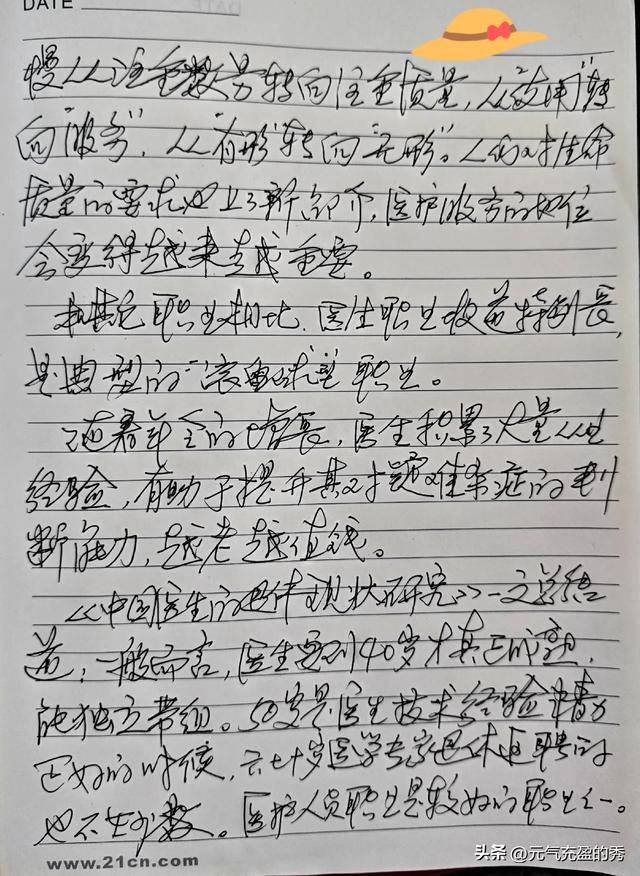 DATE
慢从注重数量转向注重质量，从"实用"转
向"服务"，从"有形"转向"无形"。人们对生命
质量的要求也上了新台阶，医护服务的地位
会变得越来越重要。
和其它职业相比，医生职业收益特别长，
是典型的"滚雪球型"职业。
随着年令的增长，医生积累了大量从业
经验，有助于提升其对疑难杂症的判
断能力，越老越值钱。
《中国医生的退休现状研究》一文总结
道，一般而言，医生要到40岁才真正成型，
能独立带组。50岁是医生技术经验精力
正好的时候，六七十岁医学专家退休返聘的
也不在少数。医护人员职业是较好的职业之一。
www.21cn.com
头条 @元气充盈的秀